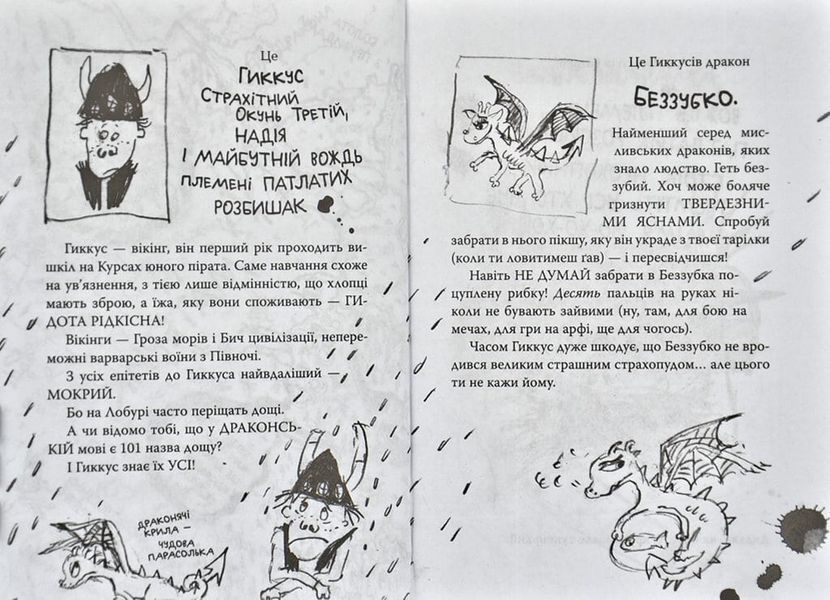 Це
ГИККУС
СТРАХІТНИЙ
ОКУНЬ ТРЕТІЙ,
НАДІЯ
І МАЙБУТНІЙ ВОЖДЬ
ПЛЕМЕНІ ПАТЛАТИХ
РОЗБИШАК
Гиккус — вікінг, він перший рік проходить ви-
шкіл на Курсах юного пірата. Саме навчання схоже
на ув’язнення, з тією лише відмінністю, що хлопці
мають зброю, а їжа, яку вони споживають — ГИ-
ДОТА РІДКІСНА!
Вікінги — Гроза морів і Бич цивілізації, непере-
можні варварські воїни з Півночі.
З усіх епітетів до Гиккуса найвдаліший —
МОКРИЙ.
Бо на Лобурі часто періщать дощі.
А чи відомо тобі, що у ДРАКОНСЬ-
КІЙ мові є 101 назва дощу?
І Гиккус знає їх УСІ!
ДРАКОНЯЧІ
КРИЛА —
ЧУДОВА
ПАРАСОЛЬКА
Це Гиккусів дракон
БЕЗЗУБКО.
Найменший серед мис-
ливських драконів, яких
знало людство. Геть без-
зубий. Хоч може боляче
гризнути ТВЕРДЕЗНИ-
МИ ЯСНАМИ. Спробуй
забрати в нього пікшу, яку він украде з твоєї тарілки
(коли ти ловитимеш ґав) — і пересвідчишся!
Навіть НЕ ДУМАЙ забрати в Беззубка по-
цуплену рибку! Десять пальців на руках ні-
коли не бувають зайвими (ну, там, для бою на
мечах, для гри на арфі, ще для чогось).
Часом Гиккус дуже шкодує, що Беззубко не вро-
дився великим страшним страхопудом... але цього
ти не кажи йому.